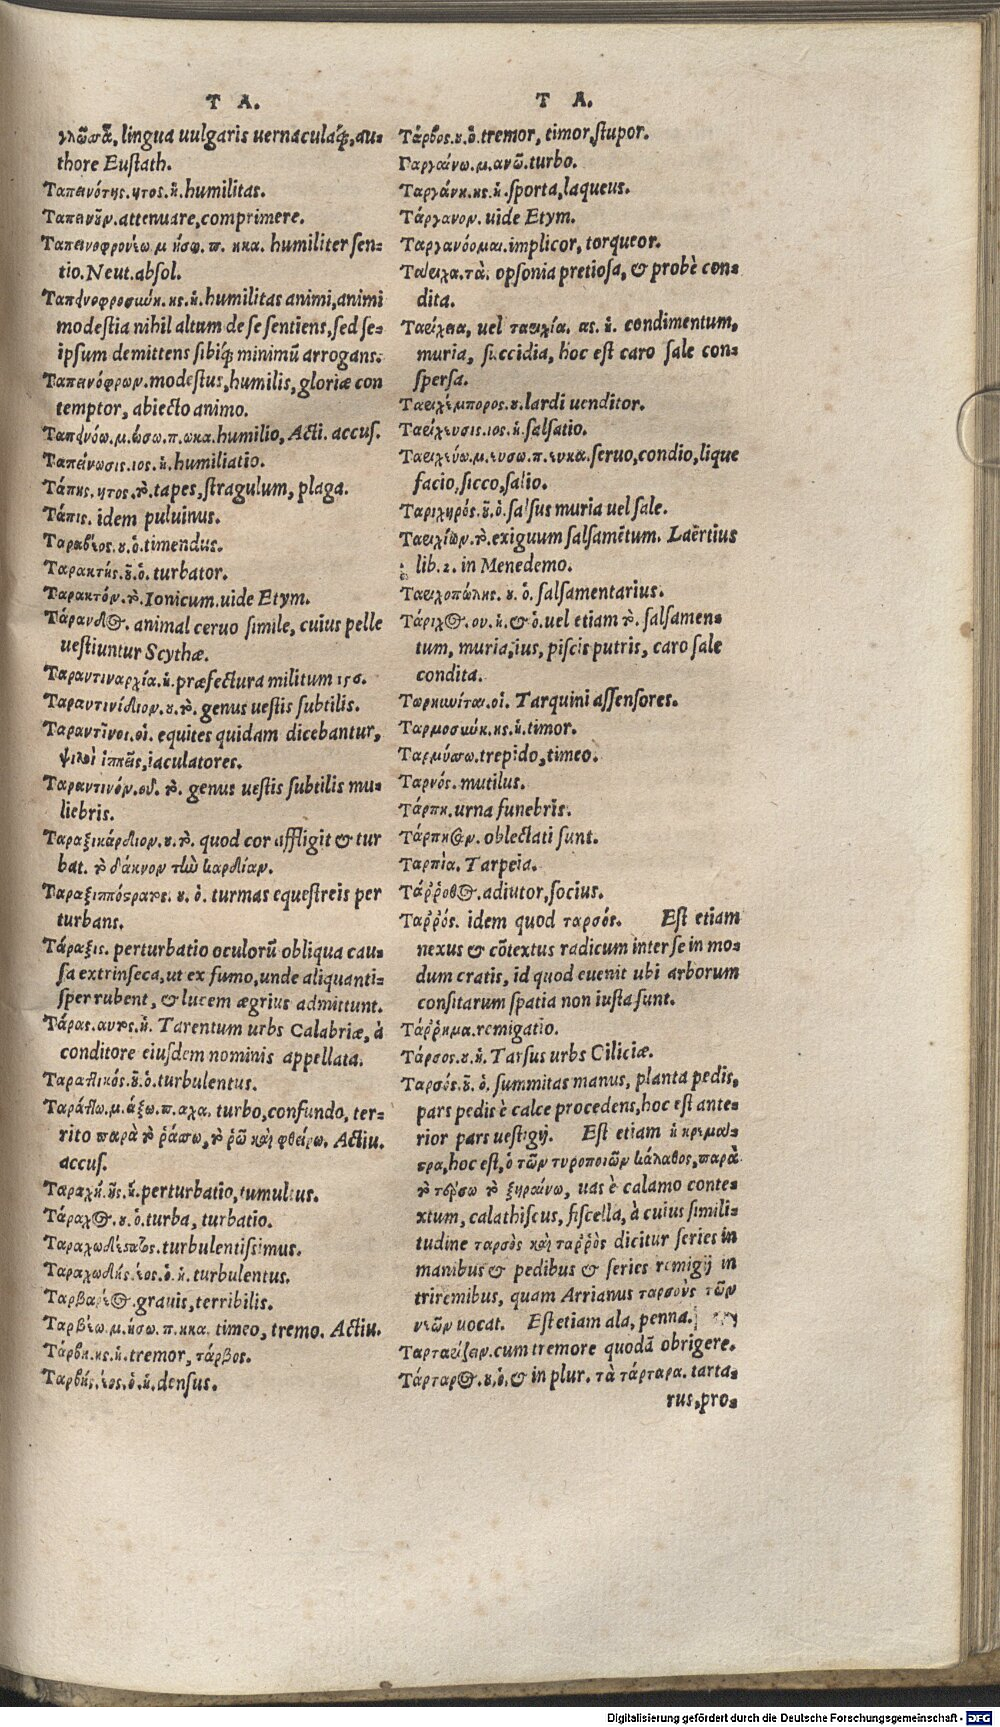 T A.
γλῶττα, lingua uulgaris uernaculaq́;, au-
thore Eustath.
Ταπεινότης.ητος.ἡ.humilitas.
Ταπεινοῦν.attenuare,comprimere.
Ταπεινοφρονέω.μ ήσω.π. ηκα. humiliter sen-
tio.Neut.absol.
Ταπεινοφροσύνη.ης.ἡ.humilitas animi,animi
modestia nihil altum de se sentiens,sed se-
ipsum demittens sibiq́; minimū arrogans.
Ταπεινόφρων.modestus,humilis,gloriæ con
temptor, abiecto animo.
Ταπεινόω.μ.ώσω.π.ωκα.humilio, Acti. accus.
Ταπείνωσις.ιος.ἡ.humiliatio.
Τάπης.ητος.ὁ.tapes,stragulum, plaga.
Τάπις. idem puluinus.
Ταρβέος.ου.ὁ.timendus.
Ταρακτής.οῦ.ὁ. turbator.
Ταρακτόν.τὸ.Ionicum.uide Etym.
Τάρανδος. animal ceruo simile, cuius pelle
uestiuntur Scythæ.
Ταραντιναρχία.ἡ.præfectura militum 156.
Ταραντινίδιον.ου.τὸ. genus uestis subtilis.
Ταραντῖνοι.οἱ. equites quidam dicebantur,
ψιλοὶ ἱππεῖς,iaculatores.
Ταραντινόν.οῦ. τὸ. genus uestis subtilis mu-
liebris.
Ταραξικάρδιον.ου.τὸ. quod cor affligit & tur
bat. τὸ δάκνον τὴν καρδίαν.
Ταραξιππόστρατος. ου. ὁ. turmas equestreis per
turbans.
Τάραξις. perturbatio oculorū obliqua cau-
sa extrinseca,ut ex fumo,unde aliquanti-
sper rubent, & lucem ægrius admittunt.
Τάρας.αντος.ἡ. Tarentum urbs Calabriæ, à
conditore eiusdem nominis appellata.
Ταρακτικός.οῦ.ὁ.turbulentus.
Ταράττω.μ.άξω.π.αχα. turbo,confundo, ter-
rito παρὰ τὸ ῥάσσω, τὸ ῥῶ καὶ φθείρω. Actiu.
accus.
Ταραχή.ῆς.ἡ.perturbatio,tumultus.
Τάραχος.ου.ὁ.turba, turbatio.
Ταραχωδέστατος.turbulentissimus.
Ταραχώδης.έος.ὁ.ἡ. turbulentus.
Ταρβαλέος.grauis,terribilis.
Ταρβέω.μ.ήσω.π.ηκα. timeo, tremo. Actiu.
Τάρβη.ης.ἡ.tremor, τάρβος.
Ταρβής.έος.ὁ.ἡ.densus.
T A.
Τάρβος.ου.ὁ.tremor, timor,stupor.
Γαργαίνω.μ.ανῶ.turbo.
Ταργάνη.ης.ἡ.sporta,laqueus.
Τάργανον. uide Etym.
Ταργανόομαι.implicor, torqueor.
Τάριχα.τὰ. opsonia pretiosa, & probè con-
dita.
Ταρίχεια, uel ταριχία. ας. ἡ. condimentum,
muria, succidia, hoc est caro sale con-
spersa.
Ταριχέμπορος.ου.lardi uenditor.
Ταρίχευσις.ιος.ἡ.salsatio.
Ταριχεύω.μ.εύσω.π.ευκα.seruo,condio,lique
facio,sicco,salio.
Ταριχηρός.οῦ.ὁ.salsus muria uel sale.
Ταριχίον.τὸ.exiguum salsamētum. Laërtius
lib.2. in Menedemo.
Ταριχοπώλης. ου. ὁ. salsamentarius.
Τάριχος. ου. ἡ. & ὁ.uel etiam τὸ. salsamen-
tum, muria,ius, piscis putris, caro sale
condita.
Ταρκυνῖται.οἱ. Tarquini assensores.
Ταρμοσύνη.ης.ἡ.timor.
Ταρμύσσω.trepido,timeo.
Ταρνός.mutilus.
Τάρπη.urna funebris.
Τάρπησαν. oblectati sunt.
Ταρπία. Tarpeia.
Τάῤῥοθος.adiutor,socius.
Ταῤῥός. idem quod ταρσός. Est etiam
nexus & cōtextus radicum inter se in mo-
dum cratis, id quod euenit ubi arborum
consitarum spatia non iusta sunt.
Τάῤῥημα.remigatio.
Τάρσος.ου.ἡ. Tarsus urbs Ciliciæ.
Ταρσός.οῦ. ὁ. summitas manus, planta pedis,
pars pedis è calce procedens,hoc est ante-
rior pars uestigij. Est etiam ἡ κρεμάσ-
τρα,hoc est,ὁ τῶν τυροποιῶν κάλαθος,παρὰ
τὸ τέρσω τὸ ξηραίνω, uas è calamo conte-
xtum, calathiscus, fiscella, à cuius simili-
tudine ταρσὸς καὶ ταῤῥὸς dicitur series in
manibus & pedibus & series remigij in
triremibus, quam Arrianus ταρσοὺς τῶν
νεῶν uocat. Est etiam ala, penna.
Ταρταρίζειν.cum tremore quodā obrigere.
Τάρταρος.ου.ὁ.& in plur. τὰ τάρταρα. tarta-
rus,pro-
Digitalisierung gefördert durch die Deutsche Forschungsgemeinschaft - DFG